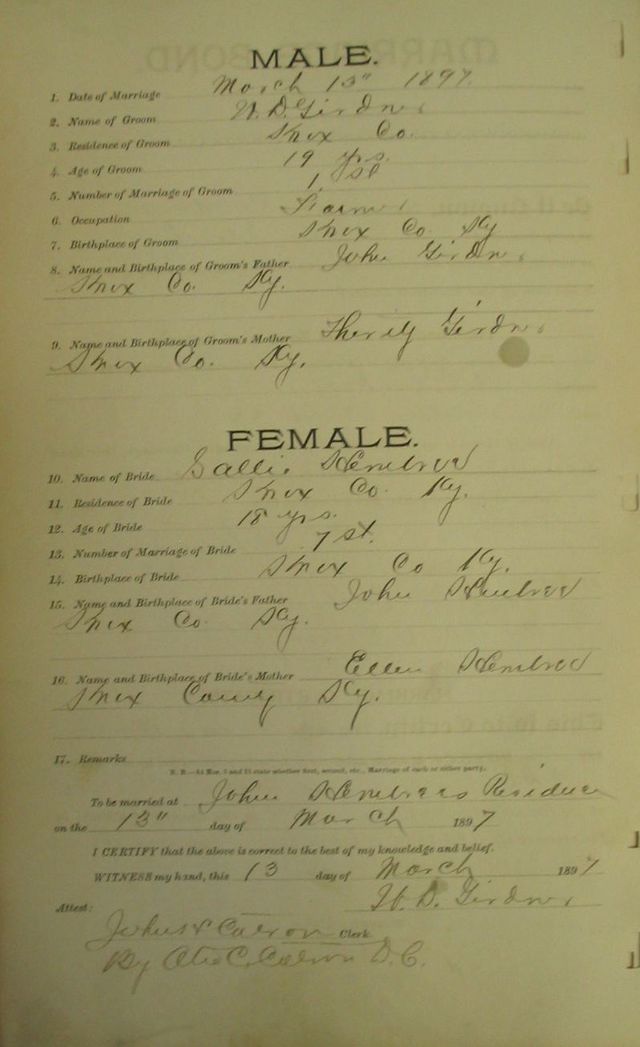 MALE.
1. Date of Marriage March 13" 1897
2. Name of Groom W. D. Girdner
3. Residence of Groom Knox Co.
4. Age of Groom 19 yrs.
5. Number of Marriage of Groom 1 st
6. Occupation Farmer
7. Birthplace of Groom Knox Co Ky
8. Name and Birthplace of Groom's Father John Girdner
Knox Co. Ky.
9. Name and Birthplace of Groom's Mother Girdner
Knox Co. Ky.
FEMALE.
10. Name of Bride Sallie Hembree
11. Residence of Bride Knox Co. Ky.
12. Age of Bride 18 yrs.
13. Number of Marriage of Bride 1 st.
14. Birthplace of Bride Knox Co Ky.
15. Name and Birthplace of Bride's Father John Hembree
Knox Co. Ky.
16. Name and Birthplace of Bride's Mother Ellen Hembree
Knox County Ky.
17. Remarks
N. B.—At Nos. 5 and 13 state whether first, second, etc., Marriage of each or either party.
To be married at John Hembrees Residence
on the 13" day of March 1897
I CERTIFY that the above is correct to the best of my knowledge and belief.
WITNESS my hand, this 13 day of March 1897
W. D. Girdner
Attest:
Clerk
By D. C.